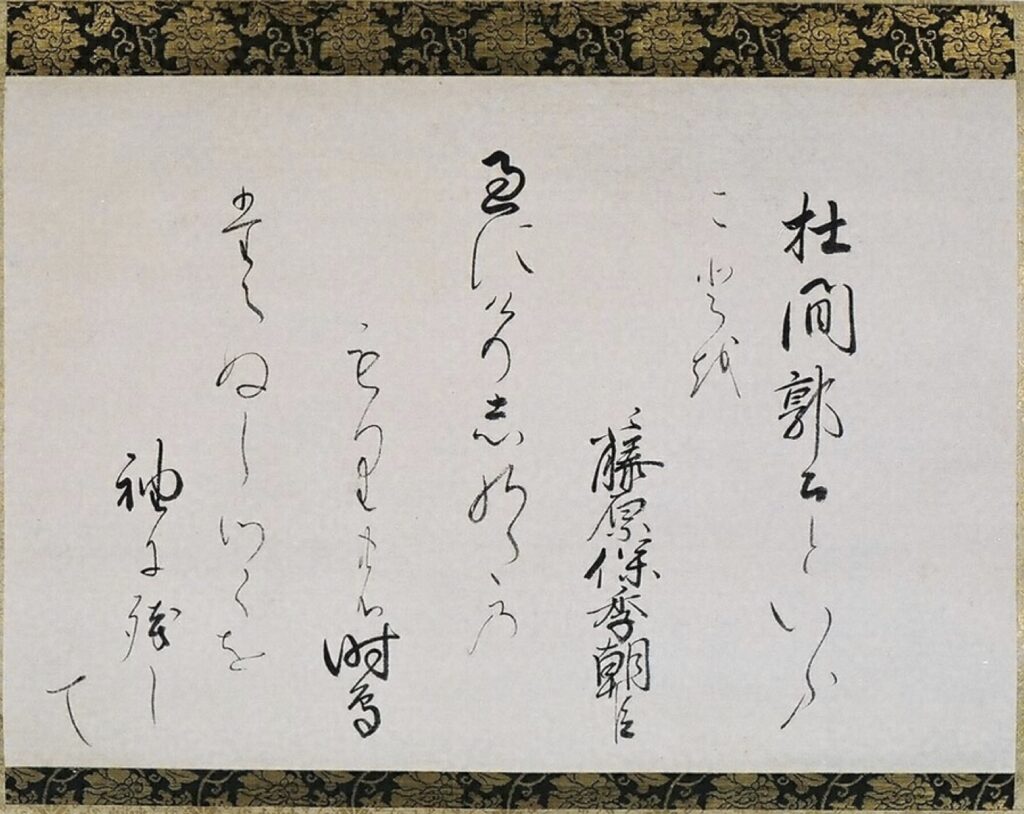 杜間郭公といふ
ことを
藤原保季朝臣
過にけり志のたの
もりの時鳥
たえぬしつくを
袖に残し
て